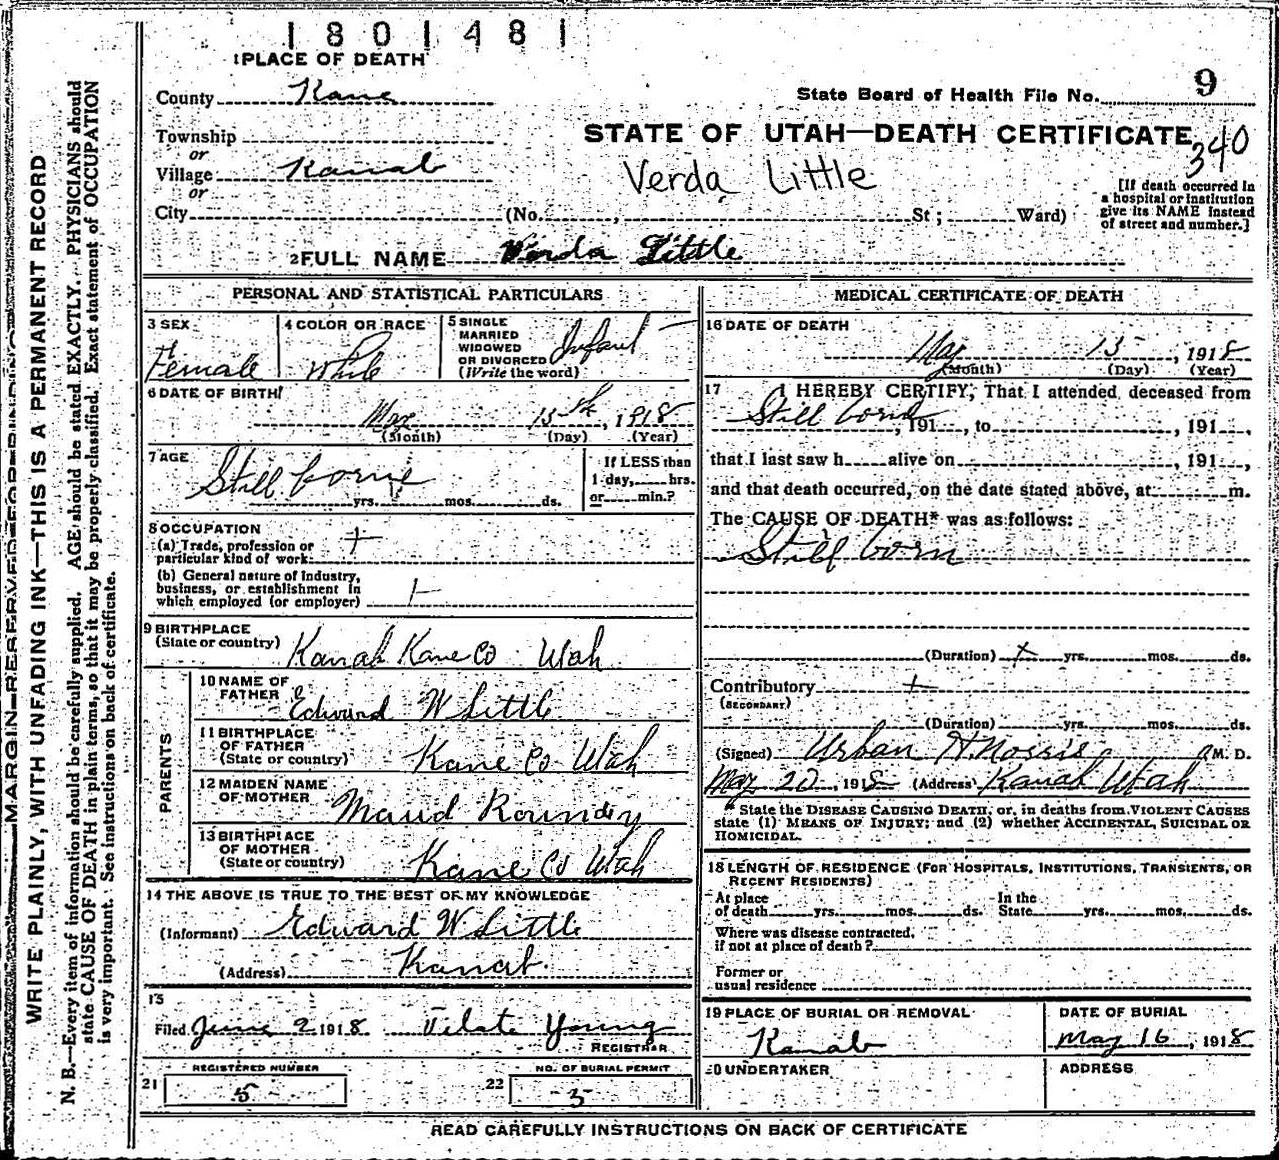 1801481
1 PLACE OF DEATH
County Kane
State Board of Health File No. 9
Township
or
Village Kanab
or
STATE OF UTAH—DEATH CERTIFICATE
340
Verda Little
City (No. , St ; Ward)
[If death occurred in
a hospital or institution
give its NAME instead
of street and number.]
2 FULL NAME Verda Little
PERSONAL AND STATISTICAL PARTICULARS
3 SEX
Female
4 COLOR OR RACE
White
5 SINGLE
MARRIED
WIDOWED
OR DIVORCED
(Write the word)
Infant
6 DATE OF BIRTH
May 15th, 1918
(Month) (Day) (Year)
7 AGE
Still borne
yrs. mos. ds.
If LESS than
1 day, hrs.
or min.?
8 OCCUPATION
(a) Trade, profession or
particular kind of work
+
(b) General nature of industry,
business, or establishment in
which employed (or employer)
9 BIRTHPLACE
(State or country) Kanab Kane Co Utah
PARENTS
10 NAME OF
FATHER Edward W Little
11 BIRTHPLACE
OF FATHER
(State or country) Kane Co Utah
12 MAIDEN NAME
OF MOTHER Maud Roundy
13 BIRTHPLACE
OF MOTHER
(State or country) Kane Co Utah
14 THE ABOVE IS TRUE TO THE BEST OF MY KNOWLEDGE
(Informant) Edward W Little
(Address) Kanab
15
Filed June 2 1918 Young
REGISTRAR
REGISTERED NUMBER
21 5
NO. OF BURIAL PERMIT
22
MEDICAL CERTIFICATE OF DEATH
16 DATE OF DEATH
May 15, 1918
(Month) (Day) (Year)
17 I HEREBY CERTIFY, That I attended deceased from
Still born, 191 , to , 191 ,
that I last saw h alive on , 191 ,
and that death occurred, on the date stated above, at m.
The CAUSE OF DEATH* was as follows:
Still born
(Duration) + yrs. mos. ds.
Contributory +
(SECONDARY)
(Duration) yrs. mos. ds.
(Signed) Urban H Norris M. D.
May 20, 1918 (Address) Kanab Utah
* State the DISEASE CAUSING DEATH, or, in deaths from VIOLENT CAUSES
state (1) MEANS OF INJURY; and (2) whether ACCIDENTAL, SUICIDAL OR
HOMICIDAL.
18 LENGTH OF RESIDENCE (FOR HOSPITALS, INSTITUTIONS, TRANSIENTS, OR
RECENT RESIDENTS)
At place
of death yrs. mos. ds.
In the
State yrs. mos. ds.
Where was disease contracted,
if not at place of death?
Former or
usual residence
19 PLACE OF BURIAL OR REMOVAL
Kanab
DATE OF BURIAL
May 16, 1918
20 UNDERTAKER
ADDRESS
READ CAREFULLY INSTRUCTIONS ON BACK OF CERTIFICATE
MARGIN RESERVED FOR BINDING
WRITE PLAINLY, WITH UNFADING INK—THIS IS A PERMANENT RECORD
N. B.—Every item of information should be carefully supplied. AGE should be stated EXACTLY. PHYSICIANS should
state CAUSE OF DEATH in plain terms, so that it may be properly classified. Exact statement of OCCUPATION
is very important. See instructions on back of certificate.